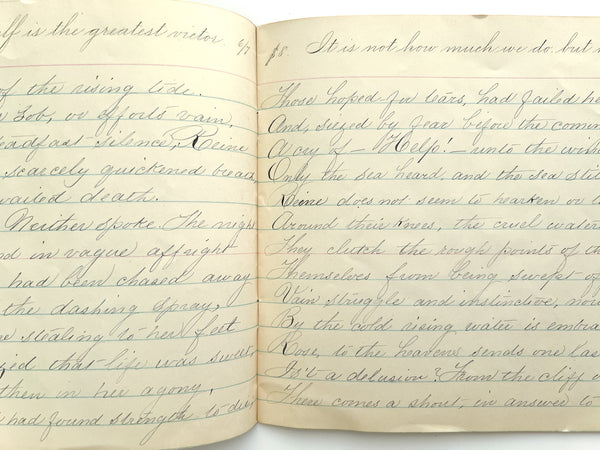 lf is the greatest victor. 67
of the rising tide.
Sob, or efforts vain,
teadfast silence, Reine
scarcely quickened breath,
vailed death.
Neither spoke. The night
d in vague affright
had been chased away
the dashing spray,
stealing to her feet
id that life was sweet,
then in her agony,
had found strength to die,
68. It is not how much we do but
Those hoped-for tears, had failed he
And, siezed by fear before the comin
A cry of — "Help"! — unto the wi
Only the sea heard, and the sea stil
Reine does not seem to hearken or
Around their knees, the cruel water
They clutch the rough points of th
Themselves from being swept of
Vain struggle and instinctive, now
By the cold rising water is embra
Rose, to the heavens sends one las
Is't a delusion? From the cliff
There comes a shout, in answer to